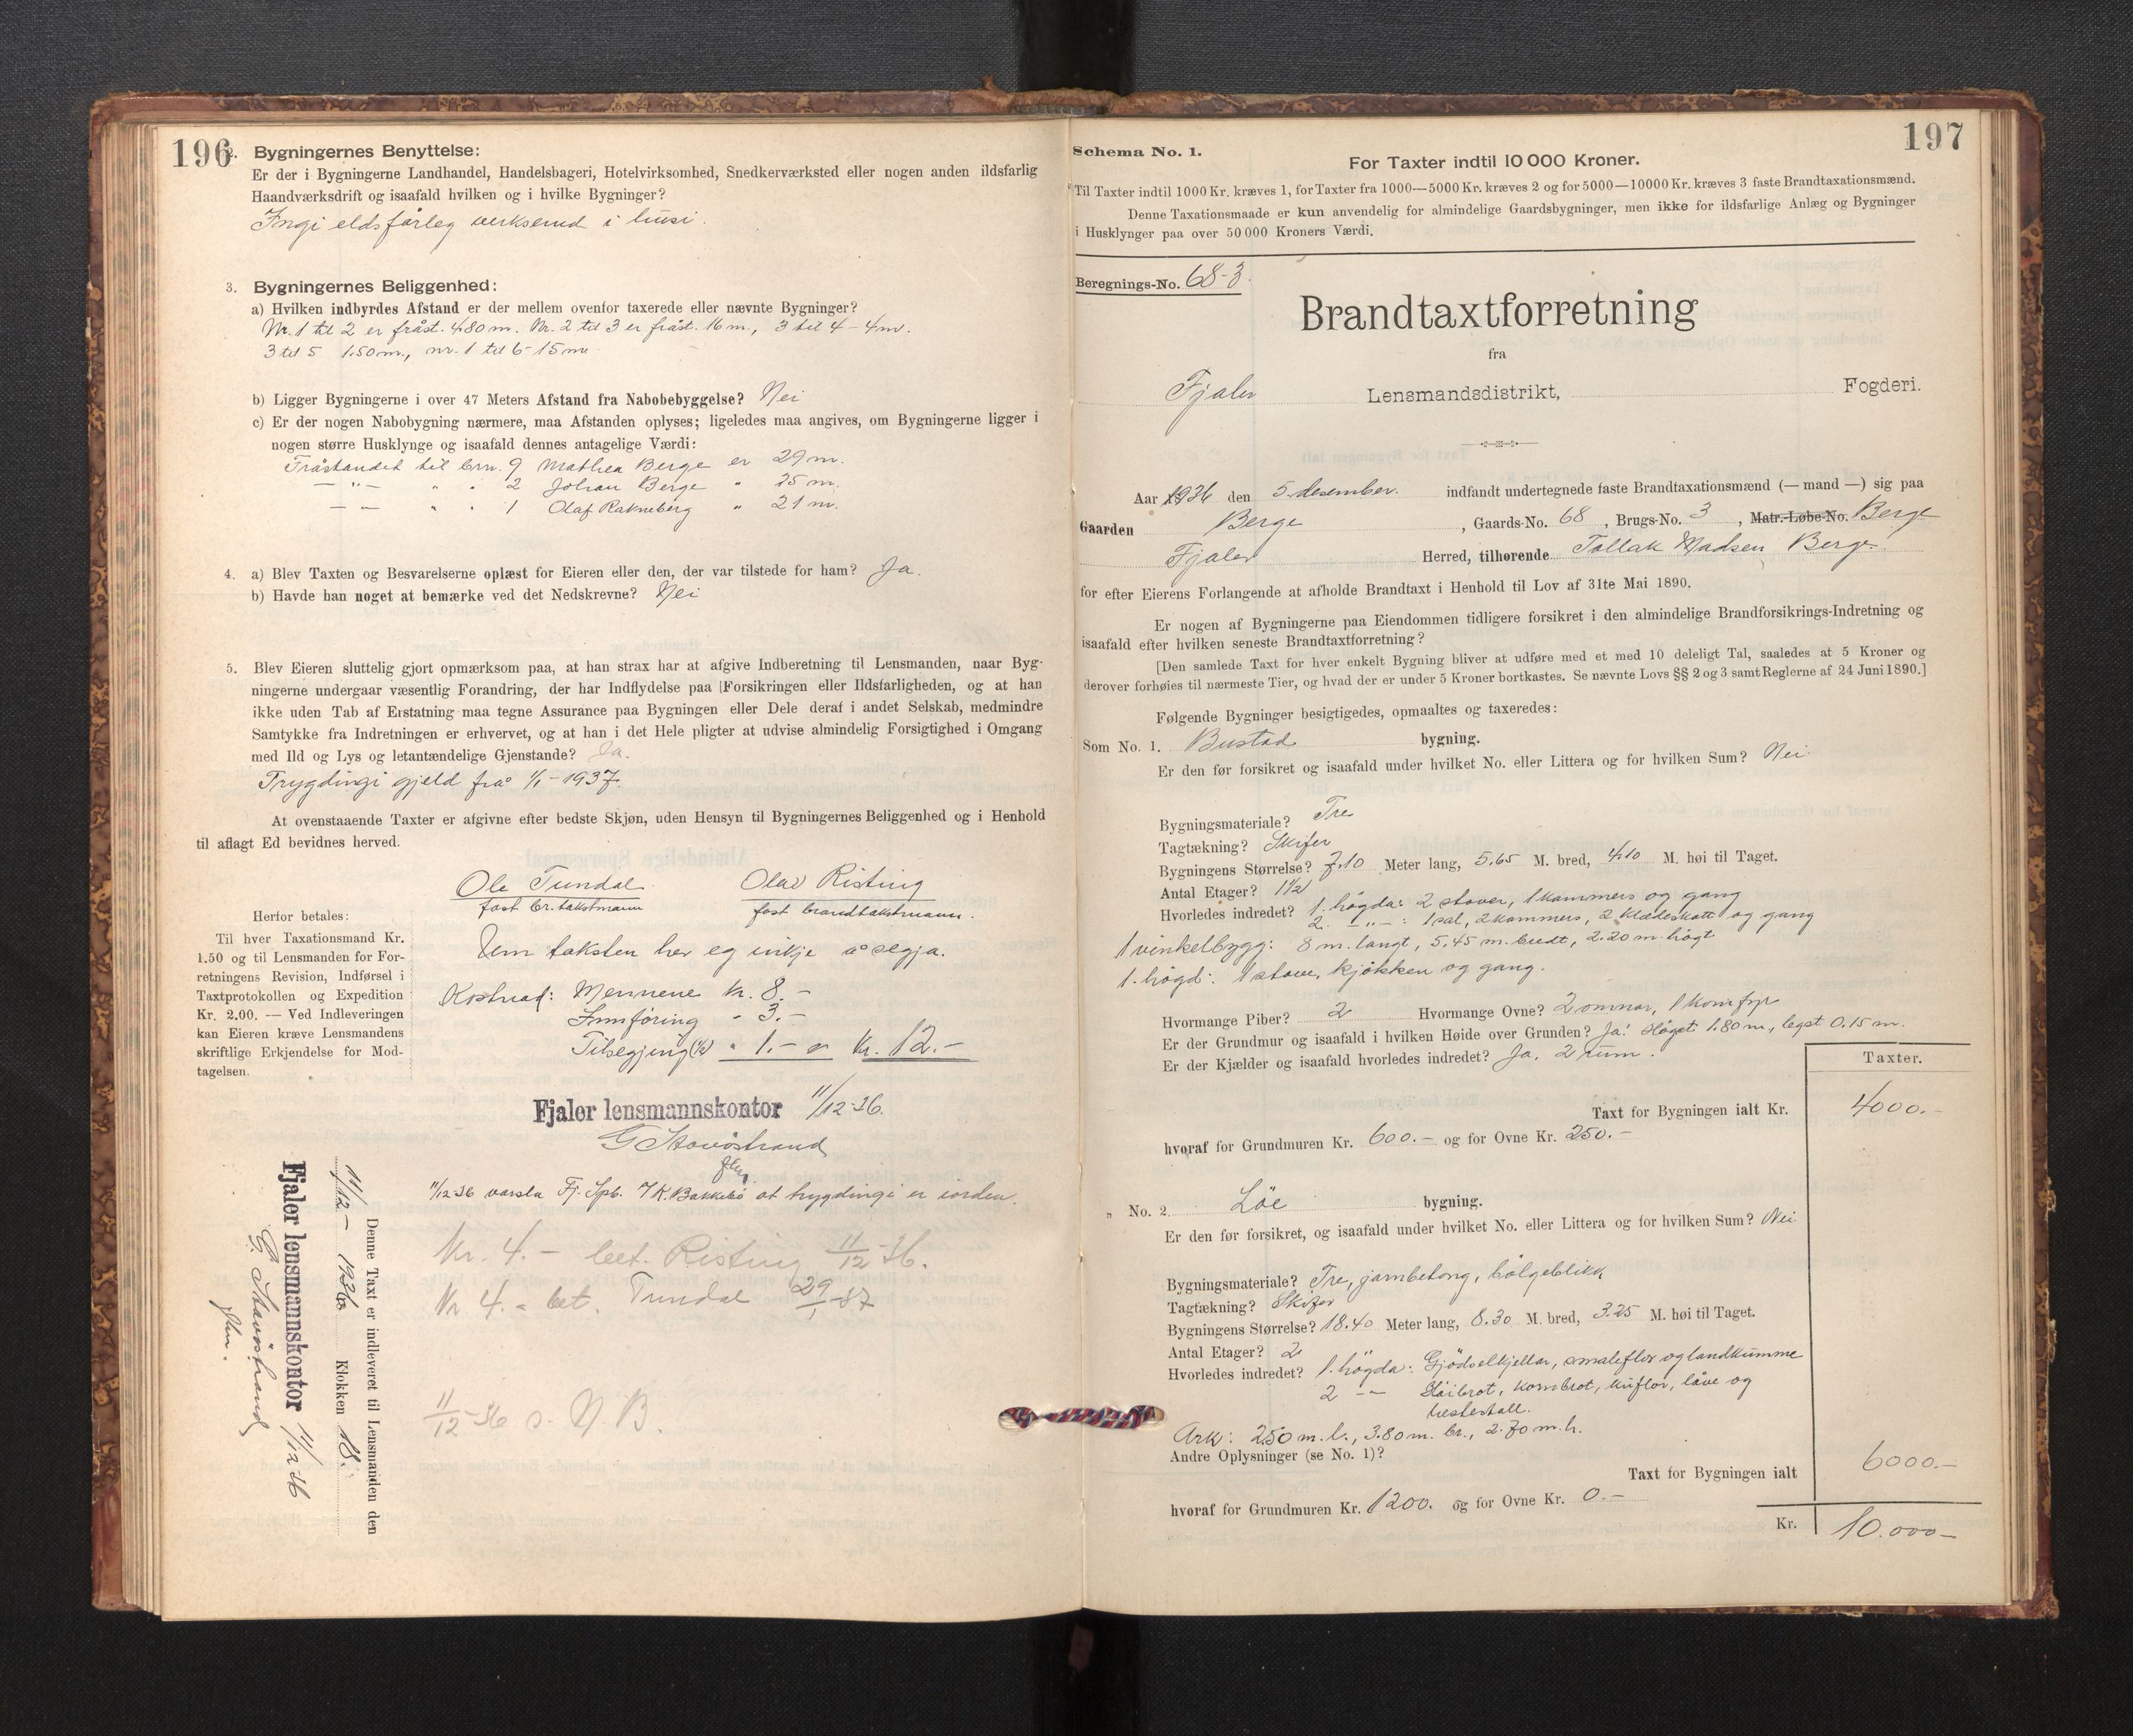 196
2. Bygningernes Benyttelse:
Er der i Bygningerne Landhandel, Handelsbageri, Hotelvirksomhed, Snedkerværksted eller nogen anden ildsfarlig
Haandværksdrift og isaafald hvilken og i hvilke Bygninger?
Ingi eldsfårleg verksemd i husi.
3. Bygningernes Beliggenhed:
a) Hvilken indbyrdes Afstand er der mellem ovenfor taxerede eller nævnte Bygninger?
Nr. 1 til 2 er fråst. 4.80 m. Nr. 2 til 3 er fråst. 16 m., 3 til 4 - 4 m.
3 til 5 1.50 m., nr. 1 til 6 - 15 m.
b) Ligger Bygningerne i over 47 Meters Afstand fra Nabobebyggelse? Nei
c) Er der nogen Nabobygning nærmere, maa Afstanden oplyses; ligeledes maa angives, om Bygningerne ligger i
nogen større Husklynge og isaafald dennes antagelige Værdi:
Fråstandet til brn. 9 Mathea Berge er 29 m.
— " — " " 2 Johan Berge " 25 m.
— — " " 1 Olaf Rakneberg " 21 m.
4. a) Blev Taxten og Besvarelserne oplæst for Eieren eller den, der var tilstede for ham? Ja.
b) Havde han noget at bemærke ved det Nedskrevne? Nei
5. Blev Eieren sluttelig gjort opmærksom paa, at han strax har at afgive Indberetning til Lensmanden, naar Byg-
ningerne undergaar væsentlig Forandring, der har Indflydelse paa Forsikringen eller Ildsfarligheden, og at han
ikke uden Tab af Erstatning maa tegne Assurance paa Bygningen eller Dele deraf i andet Selskab, medmindre
Samtykke fra Indretningen er erhvervet, og at han i det Hele pligter at udvise almindelig Forsigtighed i Omgang
med Ild og Lys og letantændelige Gjenstande? Ja.
Trygdingi gjeld frå 1/1-1937.
At ovenstaaende Taxter er afgivne efter bedste Skjøn, uden Hensyn til Bygningernes Beliggenhed og i Henhold
til aflagt Ed bevidnes herved.
Ole Tundal Olav Risting
fast br.takstmann fast brandtakstmann.
Um taksten her eg inkje å segja.
Herfor betales:
Til hver Taxationsmand Kr.
1.50 og til Lensmanden for For-
retningens Revision, Indførsel i
Taxtprotokollen og Expedition
Kr. 2.00. — Ved Indleveringen
kan Eieren kræve Lensmandens
skriftlige Erkjendelse for Mod-
tagelsen.
Kostnad: Mennene kr. 8.-
Innföring " 3.-
Tilsegjing (½) " 1.- = Kr. 12.-
Fjaler lensmannskontor 11/12-36.
G Stavöstrand
ftm.
11/12-36 varsla Fj. Spb. v/K. Bakkebö at trygdingi er iorden.
Kr. 4.- bet. Risting 11/12-36.
Kr. 4.- bet. Tundal 29/1-37
11/12-36 s. N. B.
Denne Taxt er indleveret til Lensmanden den
11/12.- 1936 Klokken 18.
Fjaler lensmannskontor 11/12 36
G. Stavöstrand
ftm.
197
Schema No. 1.
For Taxter indtil 10 000 Kroner.
Til Taxter indtil 1000 Kr. kræves 1, for Taxter fra 1000—5000 Kr. kræves 2 og for 5000—10000 Kr. kræves 3 faste Brandtaxationsmænd.
Denne Taxationsmaade er kun anvendelig for almindelige Gaardsbygninger, men ikke for ildsfarlige Anlæg og Bygninger
i Husklynger paa over 50 000 Kroners Værdi.
Beregnings-No. 68-3.
Brandtaxtforretning
fra
Fjaler Lensmandsdistrikt, Fogderi.
Aar 1936 den 5 desember. indfandt undertegnede faste Brandtaxationsmænd (— mand —) sig paa
Gaarden Berge, Gaards-No. 68, Brugs-No. 3, Matr.-Løbe-No. Berge
Fjaler Herred, tilhørende Tollak Madsen Berge
for efter Eierens Forlangende at afholde Brandtaxt i Henhold til Lov af 31te Mai 1890.
Er nogen af Bygningerne paa Eiendommen tidligere forsikret i den almindelige Brandforsikrings-Indretning og
isaafald efter hvilken seneste Brandtaxtforretning?
[Den samlede Taxt for hver enkelt Bygning bliver at udføre med et med 10 deleligt Tal, saaledes at 5 Kroner og
derover forhøies til nærmeste Tier, og hvad der er under 5 Kroner bortkastes. Se nævnte Lovs §§ 2 og 3 samt Reglerne af 24 Juni 1890.]
Følgende Bygninger besigtigedes, opmaaltes og taxeredes:
Som No. 1. Bustad bygning.
Er den før forsikret og isaafald under hvilket No. eller Littera og for hvilken Sum? Nei
Bygningsmateriale? Tre
Tagtækning? Skifer
Bygningens Størrelse? 7.10 Meter lang, 5.65 M. bred, 4.10 M. høi til Taget.
Antal Etager? 1½
Hvorledes indredet? 1. högda: 2 stover, 1 kammers og gang
2. — " — : 1 sal, 2 kammers, 2 klædeskott og gang
1 vinkelbygg: 8 m. langt, 5.45 m. bredt, 2.20 m. högt
1. högd: 1 stove, kjökken og gang.
Hvormange Piber? 2 Hvormange Ovne? 2 omnar, 1 komfyr
Er der Grundmur og isaafald i hvilken Høide over Grunden? Ja! Högst 1.80 m, lægst 0.15 m.
Er der Kjælder og isaafald hvorledes indredet? Ja, 2 rum.
Taxter.
Taxt for Bygningen ialt Kr. 4000.-
hvoraf for Grundmuren Kr. 600.- og for Ovne Kr. 250.-
" No. 2. Löe bygning.
Er den før forsikret, og isaafald under hvilket No. eller Littera og for hvilken Sum? Nei
Bygningsmateriale? Tre, jarnbetong, bölgeblikk
Tagtækning? Skifer
Bygningens Størrelse? 18.40 Meter lang, 8.30 M. bred, 3.25 M. høi til Taget.
Antal Etager? 2
Hvorledes indredet? 1. högda: Gjödselkjellar, smaleflor og landkumme
2 — — Höibrot, kornbrot, kuflor, låve og
hestestall.
Ark: 2.50 m. l., 3.80 m. br., 2.70 m. h.
Andre Oplysninger (se No. 1)?
Taxt for Bygningen ialt 6000.-
hvoraf for Grundmuren Kr. 1200. og for Ovne Kr. 0.-
Kr. 10.000-